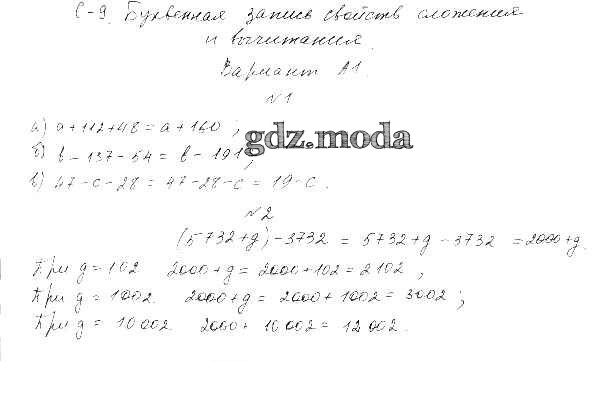 С-9. Буквенная запись свойств сложения
и вычитания.
Вариант А1.
№1
а) a+112+48=a+160;
gdz.moda
б) b-137-54=b-191;
в) 47-c-28=47-28-c=19-c.
№2
(5732+g)-3732=5732+g-3732=2000+g.
При g=102 2000+g=2000+102=2102;
При g=1002. 2000+g=2000+1002=3002;
При g=10002. 2000+10002=12002.